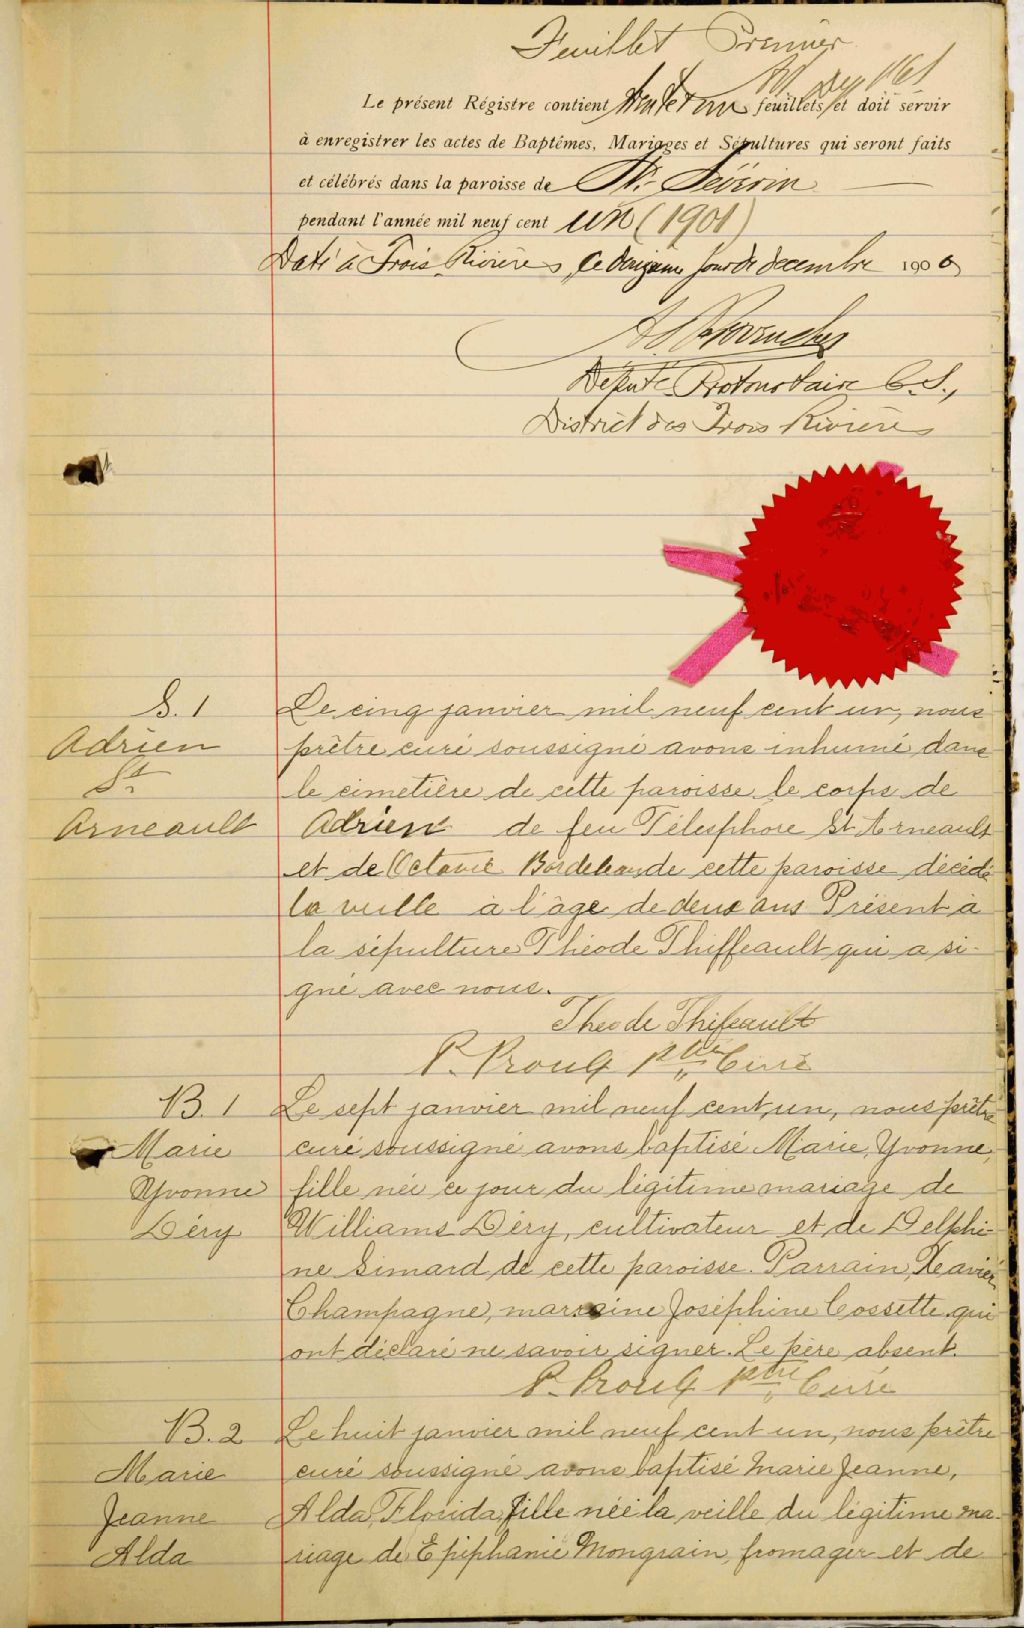 Feuillet Premier
Le présent Régistre contient trente et un feuillets, et doit servir
à enregistrer les actes de Baptêmes, Mariages et Sépultures qui seront faits
et célébrés dans la paroisse de St. Séverin
pendant l'année mil neuf cent un (1901)
Daté à Trois Rivières, ce jour de decembre 1900
Provencher
Député Protonotaire C. S.,
District des Trois Rivières
S. 1
Adrien
St
Arneault
Le cinq janvier mil neuf cent un, nous
prêtre curé soussigné avons inhumé dans
le cimetière de cette paroisse le corps de
Adrien de feu Télesphore St Arneault
et de Octavie Bordeleau de cette paroisse décédé
la veille à l'âge de deux ans Présent à
la sépulture Théode Thiffeault qui a si-
gné avec nous.
Theode Thifeault
P. Proulx ptre Curé
B. 1
Marie
Yvonne
Déry
Le sept janvier mil neuf cent un, nous prêtre
curé soussigné avons baptisé Marie, Yvonne,
fille née ce jour du légitime mariage de
Williams Déry, cultivateur et de Delphi-
ne Simard de cette paroisse. Parrain, Xeavier
Champagne, marraine Joséphine Cossette qui
ont déclaré ne savoir signer. Le père absent.
P. Proulx ptre Curé
B. 2
Marie
Jeanne
Alda
Le huit janvier mil neuf cent un, nous prêtre
curé soussigné avons baptisé Marie Jeanne,
Alda, Florida, fille née la veille du légitime ma-
riage de Epiphanie Mongrain, fromager et de